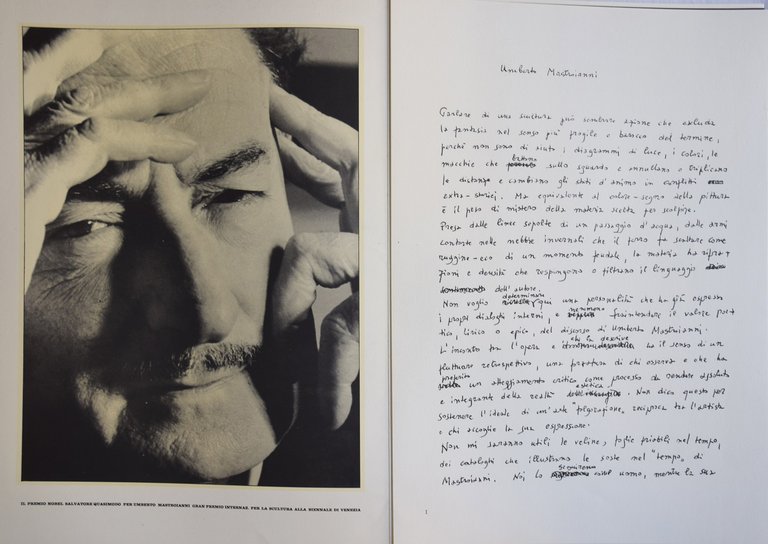 IL PREMIO NOBEL SALVATORE QUASIMODO PER UMBERTO MASTROIANNI GRAN PREMIO INTERNAZ. PER LA SCULTURA ALLA BIENNALE DI VENEZIA
Umberto Mastroianni
Parlare di una scultura può sembrare azione che escluda
la fantasia nel senso più fragile o barocco del termine,
poiché non sono di aiuto i diagrammi di luce, i colori, le
macchie che battono sullo sguardo e annullano o triplicano
le distanze e cambiano gli stati d'animo in conflitti
extra-storici. Ma equivalente al colore-segno della pittura
è il peso di mistero della materia scelta per scolpire.
Presa dalle linee sepolte di un passaggio d'acqua, dalle armi
contorte nelle nebbie invernali che il ferro fa scattare come
ruggine-eco di un momento feudale, la materia ha
zioni e densità che respingono o filtrano il linguaggio
dell'autore.
Non voglio determinare qui una personalità che ha già espresso
i propri dialoghi interni, e nemmeno fraintendere il valore poe-
tico, lirico o epico, del discorso di Umberto Mastroianni.
L'incontro tra l'opera e chi la descrive ha il senso di un
fluttuare retrospettivo, una di chi osserva e che ha
un atteggiamento critico come processo da rendere assoluto
e integrante della realtà estetica. Non dico questo per
sostenere l'ideale di un'arte "folgorazione" reciproca tra l'artista
e chi accoglie la sua espressione.
Non mi saranno utili le veline, foglie friabili nel tempo,
dei cataloghi che illustrano le soste nel "tempo" di
Mastroianni. Noi lo seguiremo uomo, mentre la sua
1